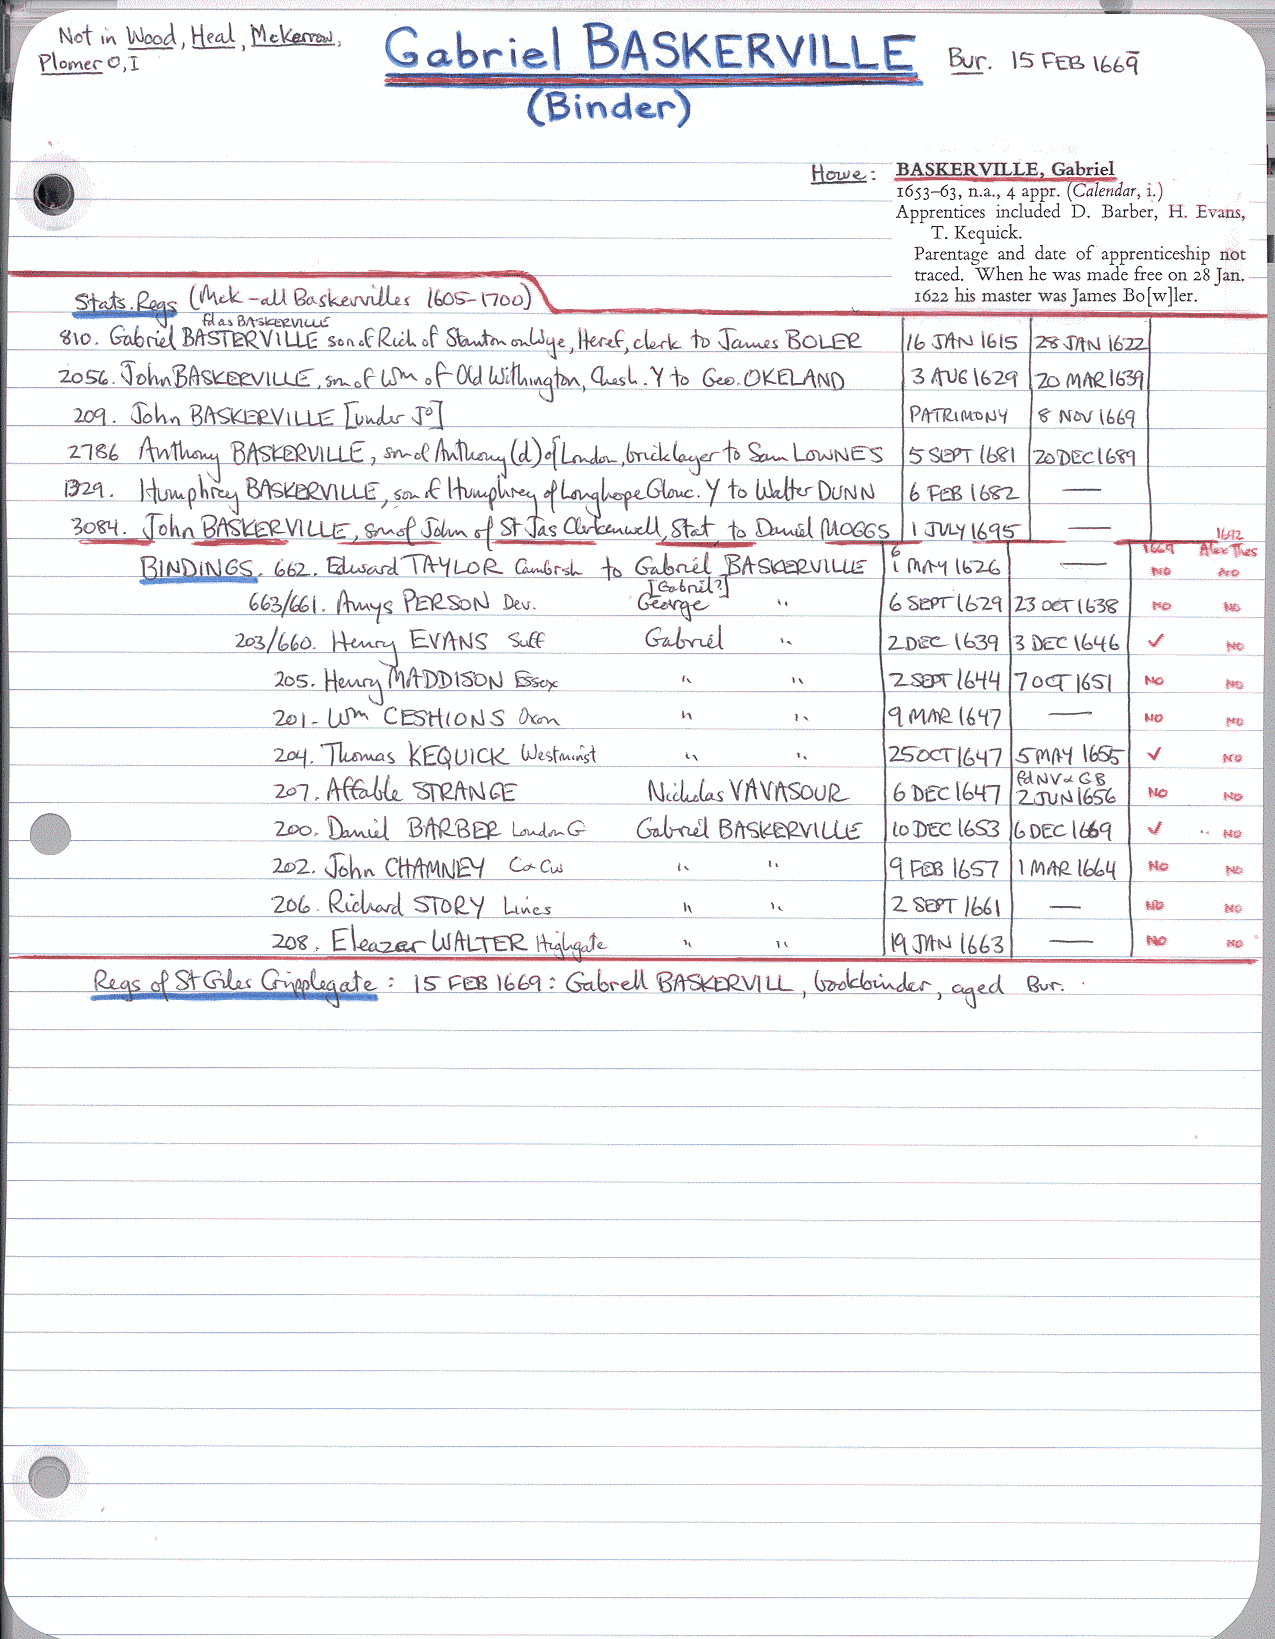 Not in Wood, Heal, McKerrow,
Plomer O, I
Gabriel BASKERVILLE
(Binder)
Bur. 15 FEB 1669
Howe:
BASKERVILLE, Gabriel
1653–63, n.a., 4 appr. (Calendar, i.)
Apprentices included D. Barber, H. Evans,
T. Kequick.
Parentage and date of apprenticeship not
traced. When he was made free on 28 Jan.
1622 his master was James Bo[w]ler.
Stats. Regs (McK - all Baskervilles 1605-1700)
fd as BASKERVILLE
810. Gabriel BASTERVILLE son of Rich of Stanton on Wye, Heref, clerk to James BOLER 16 JAN 1615 28 JAN 1622
2056. John BASKERVILLE, son of Wm of Old Withington, Chesh. Y to Geo. OKELAND 3 AUG 1629 20 MAR 1639
209. John BASKERVILLE [under Jo] PATRIMONY 8 NOV 1669
2786 Anthony BASKERVILLE, son of Anthony (d) of London, bricklayer to Sam LOWNES 5 SEPT 1681 20 DEC 1689
1329. Humphrey BASKERVILLE, son of Humphrey of Longhope Glouc. Y to Walter DUNN 6 FEB 1682 —
3084. John BASKERVILLE, son of John of St Jas Clerkenwell, Stat, to Daniel MOGGS 1 JULY 1695 —
1692
1669 Alex Thes
BINDINGS. 662. Edward TAYLOR Cambrsh to Gabriel BASKERVILLE 1 MAY 1626 — NO NO
[Gabriel?]
663/661. Amys PERSON Dev. George " 6 SEPT 1629 23 OCT 1638 NO NO
203/660. Henry EVANS Suff Gabriel " 2 DEC 1639 3 DEC 1646 ✓ NO
205. Henry MADDISON Essex " " 2 SEPT 1644 7 OCT 1651 NO NO
201. Wm CESHIONS Oxon " " 9 MAR 1647 — NO NO
204. Thomas KEQUICK Westminst " " 25 OCT 1647 5 MAY 1655 ✓ NO
fd NV & GB
207. Affable STRANGE Nicholas VAVASOUR 6 DEC 1647 2 JUN 1656 NO NO
200. Daniel BARBER London G Gabriel BASKERVILLE 10 DEC 1653 6 DEC 1669 ✓ NO
202. John CHAMNEY C & Cw " " 9 FEB 1657 1 MAR 1664 NO NO
206. Richard STORY Lincs " " 2 SEPT 1661 — NO NO
208. Eleazer WALTER Highgate " " 19 JAN 1663 — NO NO
Regs of St Giles Cripplegate: 15 FEB 1669: Gabrell BASKERVILL, bookbinder, aged Bur.